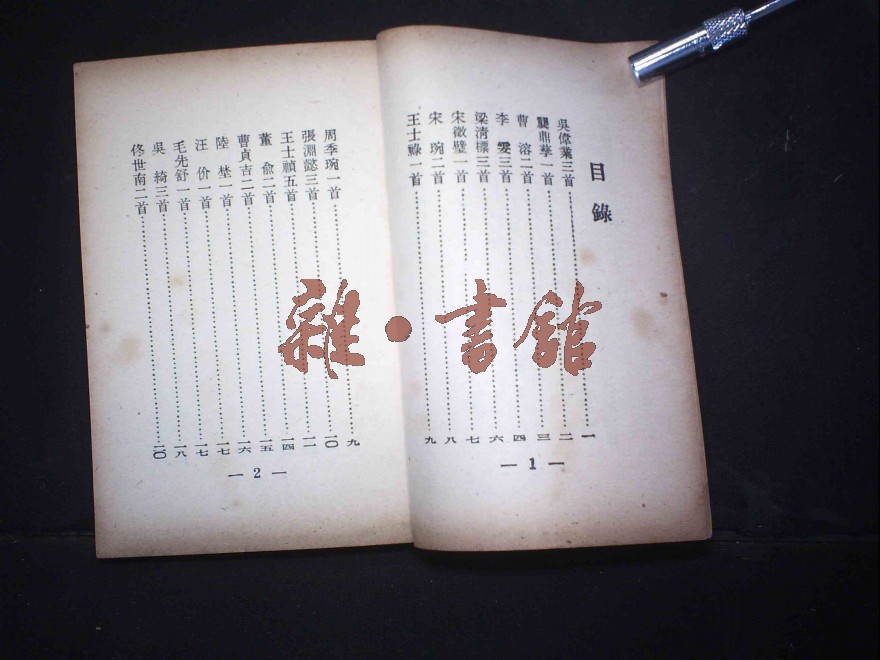 目錄
吳偉業三首……一
龔鼎孳一首……二
曹 溶二首……三
李 雯三首……四
梁清標三首……六
宋徵璧一首……七
宋 琬二首……八
王士祿一首……九
— 1 —
周季琬一首……九
張淵懿三首……一〇
王士禎五首……一二
董 俞二首……一四
曹貞吉二首……一五
陸 埜一首……一六
汪 价一首……一七
毛先舒一首……一七
吳 綺三首……一八
佟世南二首……二〇
— 2 —
雜·書館